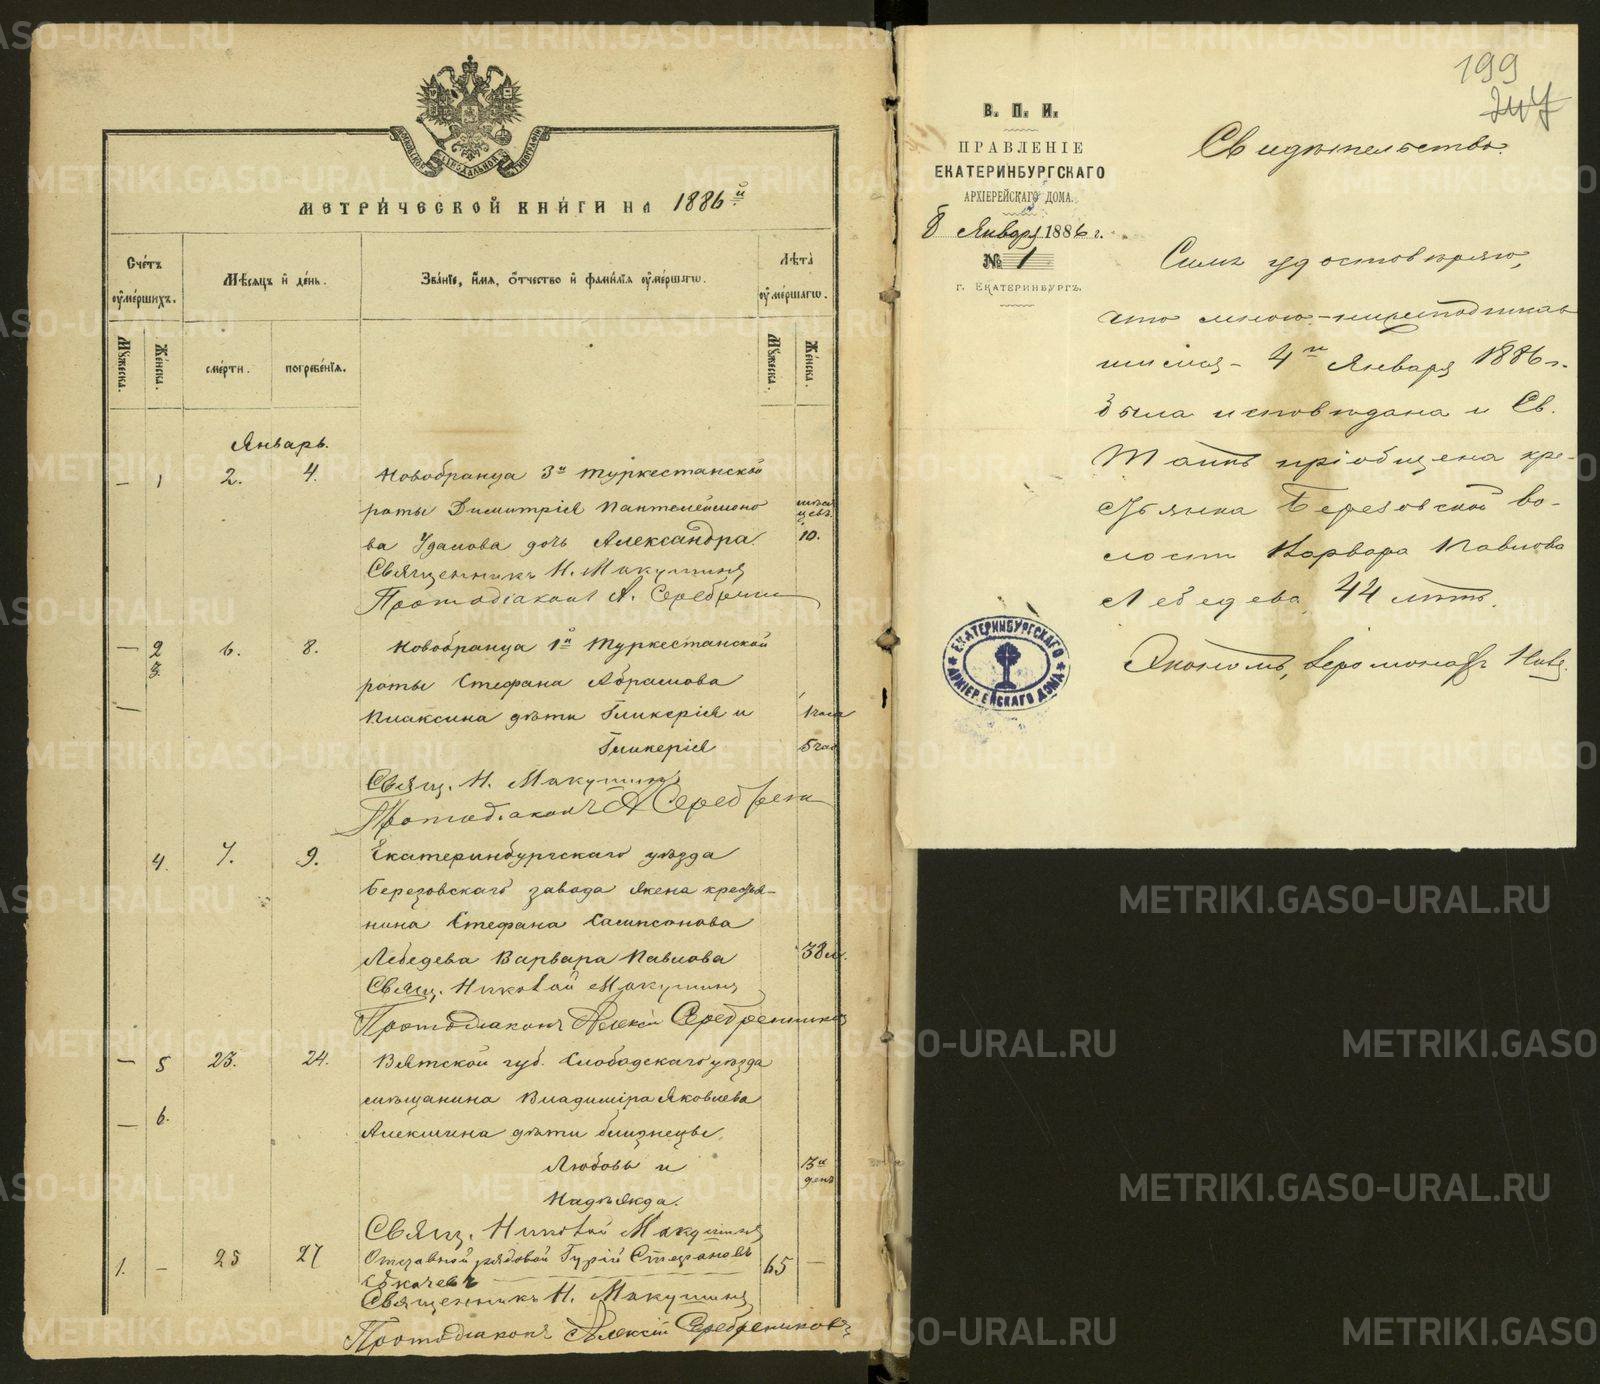 МЕТРИ́ЧЕСКОЙ КНИ́ГИ НА 1886й
Сче́тъ оу҆ме́ршихъ.
Мѣ́сяцъ и҆ де́нь.
Зва́нїе, и҆́мя, ѻ҆́тчество и҆ фами́лїя оу҆ме́ршагѡ.
Лѣ́та оу҆ме́ршагѡ.
Мꙋ́жеска.
Же́нска.
сме́рти.
погребе́нїя.
Мꙋ́жеска.
Же́нска.
Январь.
— 1 2. 4. Новобранца 3й Туркестанской
роты Димитрія Пантелеймоно
ва Удалова дочь Александра мѣся
цевъ 10.
Священникъ Н. Макушинъ
Протодіаконъ А. Серебрен
— 2 6. 8. Новобранца 1й Туркестанской
3
роты Стефана Абрамова
— Плаксина дѣти Гликерія и 1 часа
Гликерія 5 час
Свящ. Н. Макушинъ
Протодіаконъ А Серебрен
4. 7. 9. Екатеринбургскаго уѣзда
Березовскаго завода жена кресть-
нина Стефана Сампсонова
Лебедева Варвара Павлова 38 л.
Свящ. Николай Макушинъ
Протодіаконъ Алексій Серебренников
— 5 23. 24. Вятской губ. Слободскаго уѣзда
мѣщанина Владиміра Яковлева
— 6. Алекшина дѣти близнецы,
Любовь и 3й
день
Надѣжда.
Свящ. Николай Макушинъ
1. — 25 27 Отставной рядовой Гурій Стефановъ 65 —
Священникъ Н. Макушинъ
Протодіаконъ Алексій Серебренниковъ
199
В. П. И.
ПРАВЛЕНІЕ
ЕКАТЕРИНБУРГСКАГО
АРХІЕРЕЙСКАГО ДОМА.
8 Января 1886 г.
№ 1
г. ЕКАТЕРИНБУРГЪ.
Свидѣтельство.
Симъ удостовѣряю,
что мною-нижеподписав
шимся- 4го Января 1886 г.
была исповѣдана и Св.
Таинъ пріобщена кре-
стьянка Березовской во-
лости Варвара Павлова
Лебедева, 44 лѣтъ.
Экономъ, Іеромонахъ
ЕКАТЕРИНБУРГСКАГО
АРХІЕРЕЙСКАГО ДОМА
METRIKI.GASO-URAL.RU